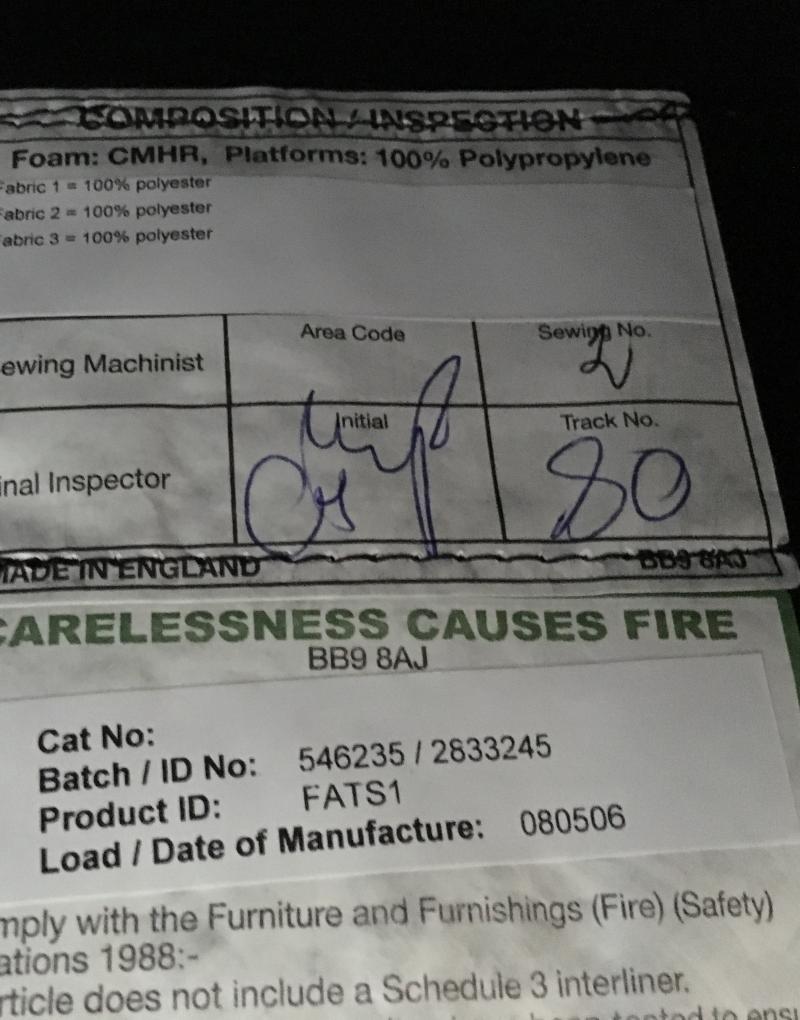 COMPOSITION / INSPECTION
Foam: CMHR, Platforms: 100% Polypropylene
Fabric 1 = 100% polyester
Fabric 2 = 100% polyester
Fabric 3 = 100% polyester
Area Code
Sewing No.
ewing Machinist
Initial
Track No.
inal Inspector
80
MADE IN ENGLAND
BB9 8AJ
CARELESSNESS CAUSES FIRE
BB9 8AJ
Cat No:
Batch / ID No: 546235 / 2833245
Product ID: FATS1
Load / Date of Manufacture: 080506
mply with the Furniture and Furnishings (Fire) (Safety)
ations 1988:-
rticle does not include a Schedule 3 interliner.